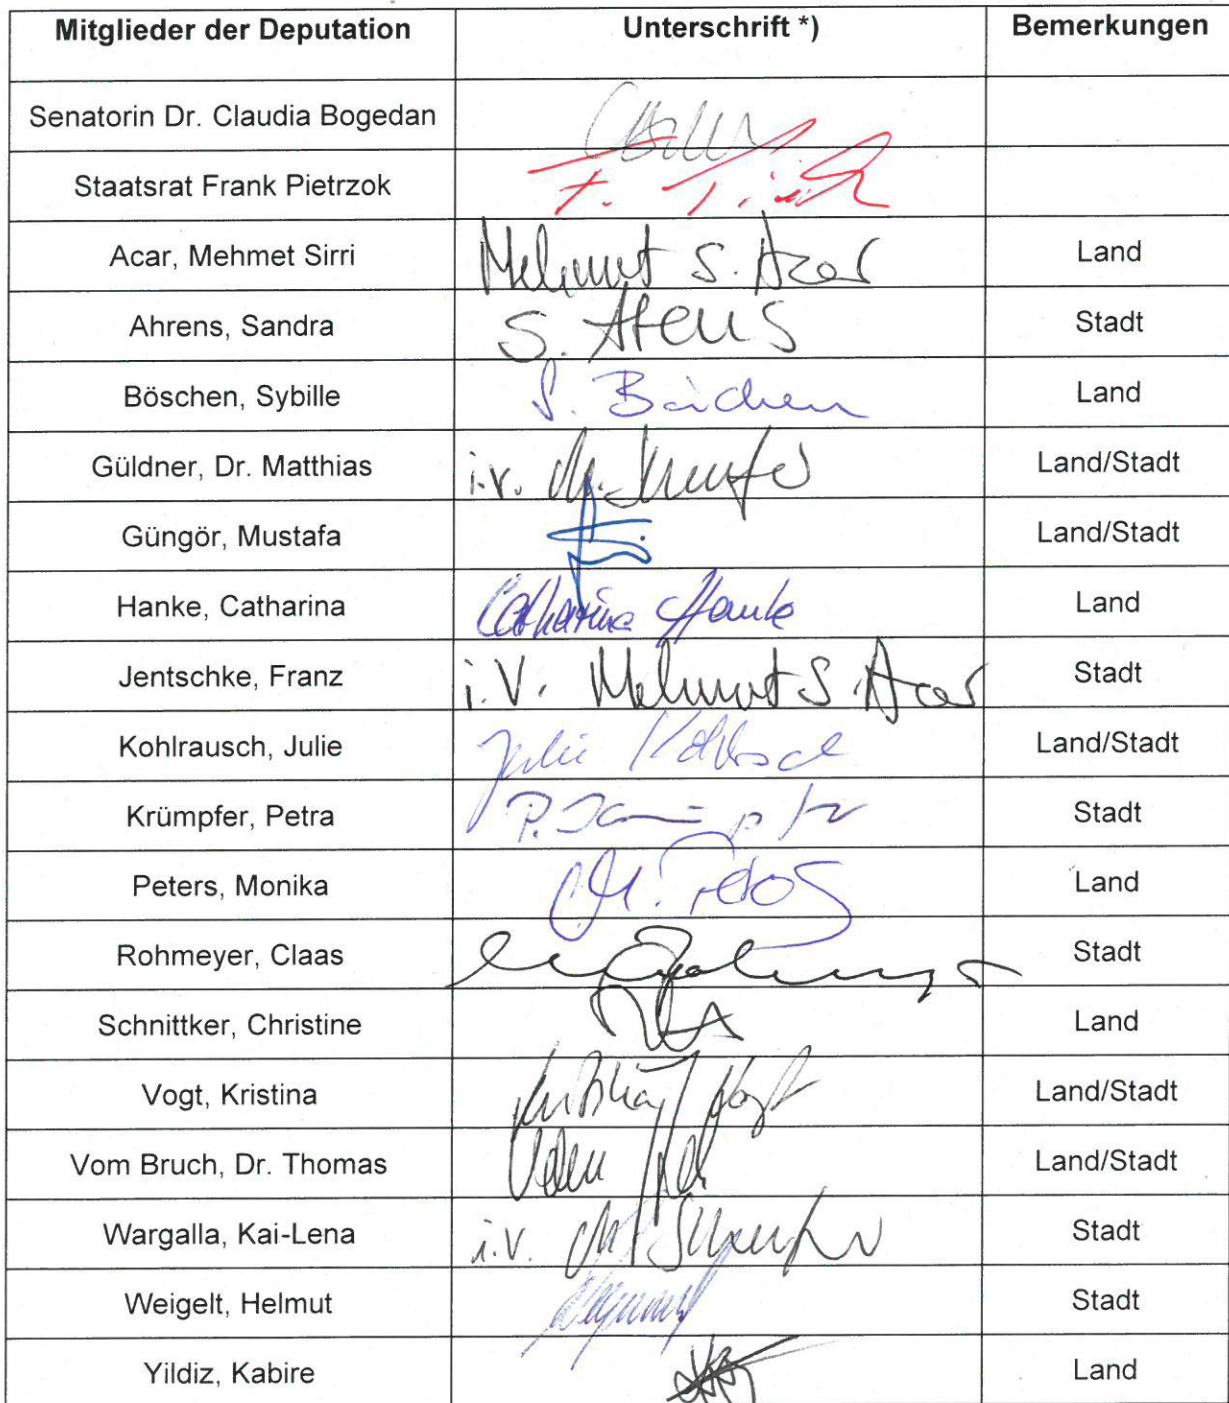 Mitglieder der Deputation Unterschrift *) Bemerkungen
Senatorin Dr. Claudia Bogedan
Staatsrat Frank Pietrzok F.
Acar, Mehmet Sirri Mehmet S. Acar Land
Ahrens, Sandra S. Ahrens Stadt
Böschen, Sybille S. Böschen Land
Güldner, Dr. Matthias i.V. Land/Stadt
Güngör, Mustafa Land/Stadt
Hanke, Catharina Catharina Hanke Land
Jentschke, Franz i.V. Mehmet S. Acar Stadt
Kohlrausch, Julie Julie Kohlrausch Land/Stadt
Krümpfer, Petra P. Krümpfer Stadt
Peters, Monika M. Peters Land
Rohmeyer, Claas Stadt
Schnittker, Christine Land
Vogt, Kristina Kristina Vogt Land/Stadt
Vom Bruch, Dr. Thomas Land/Stadt
Wargalla, Kai-Lena i.V. Stadt
Weigelt, Helmut Stadt
Yildiz, Kabire Land